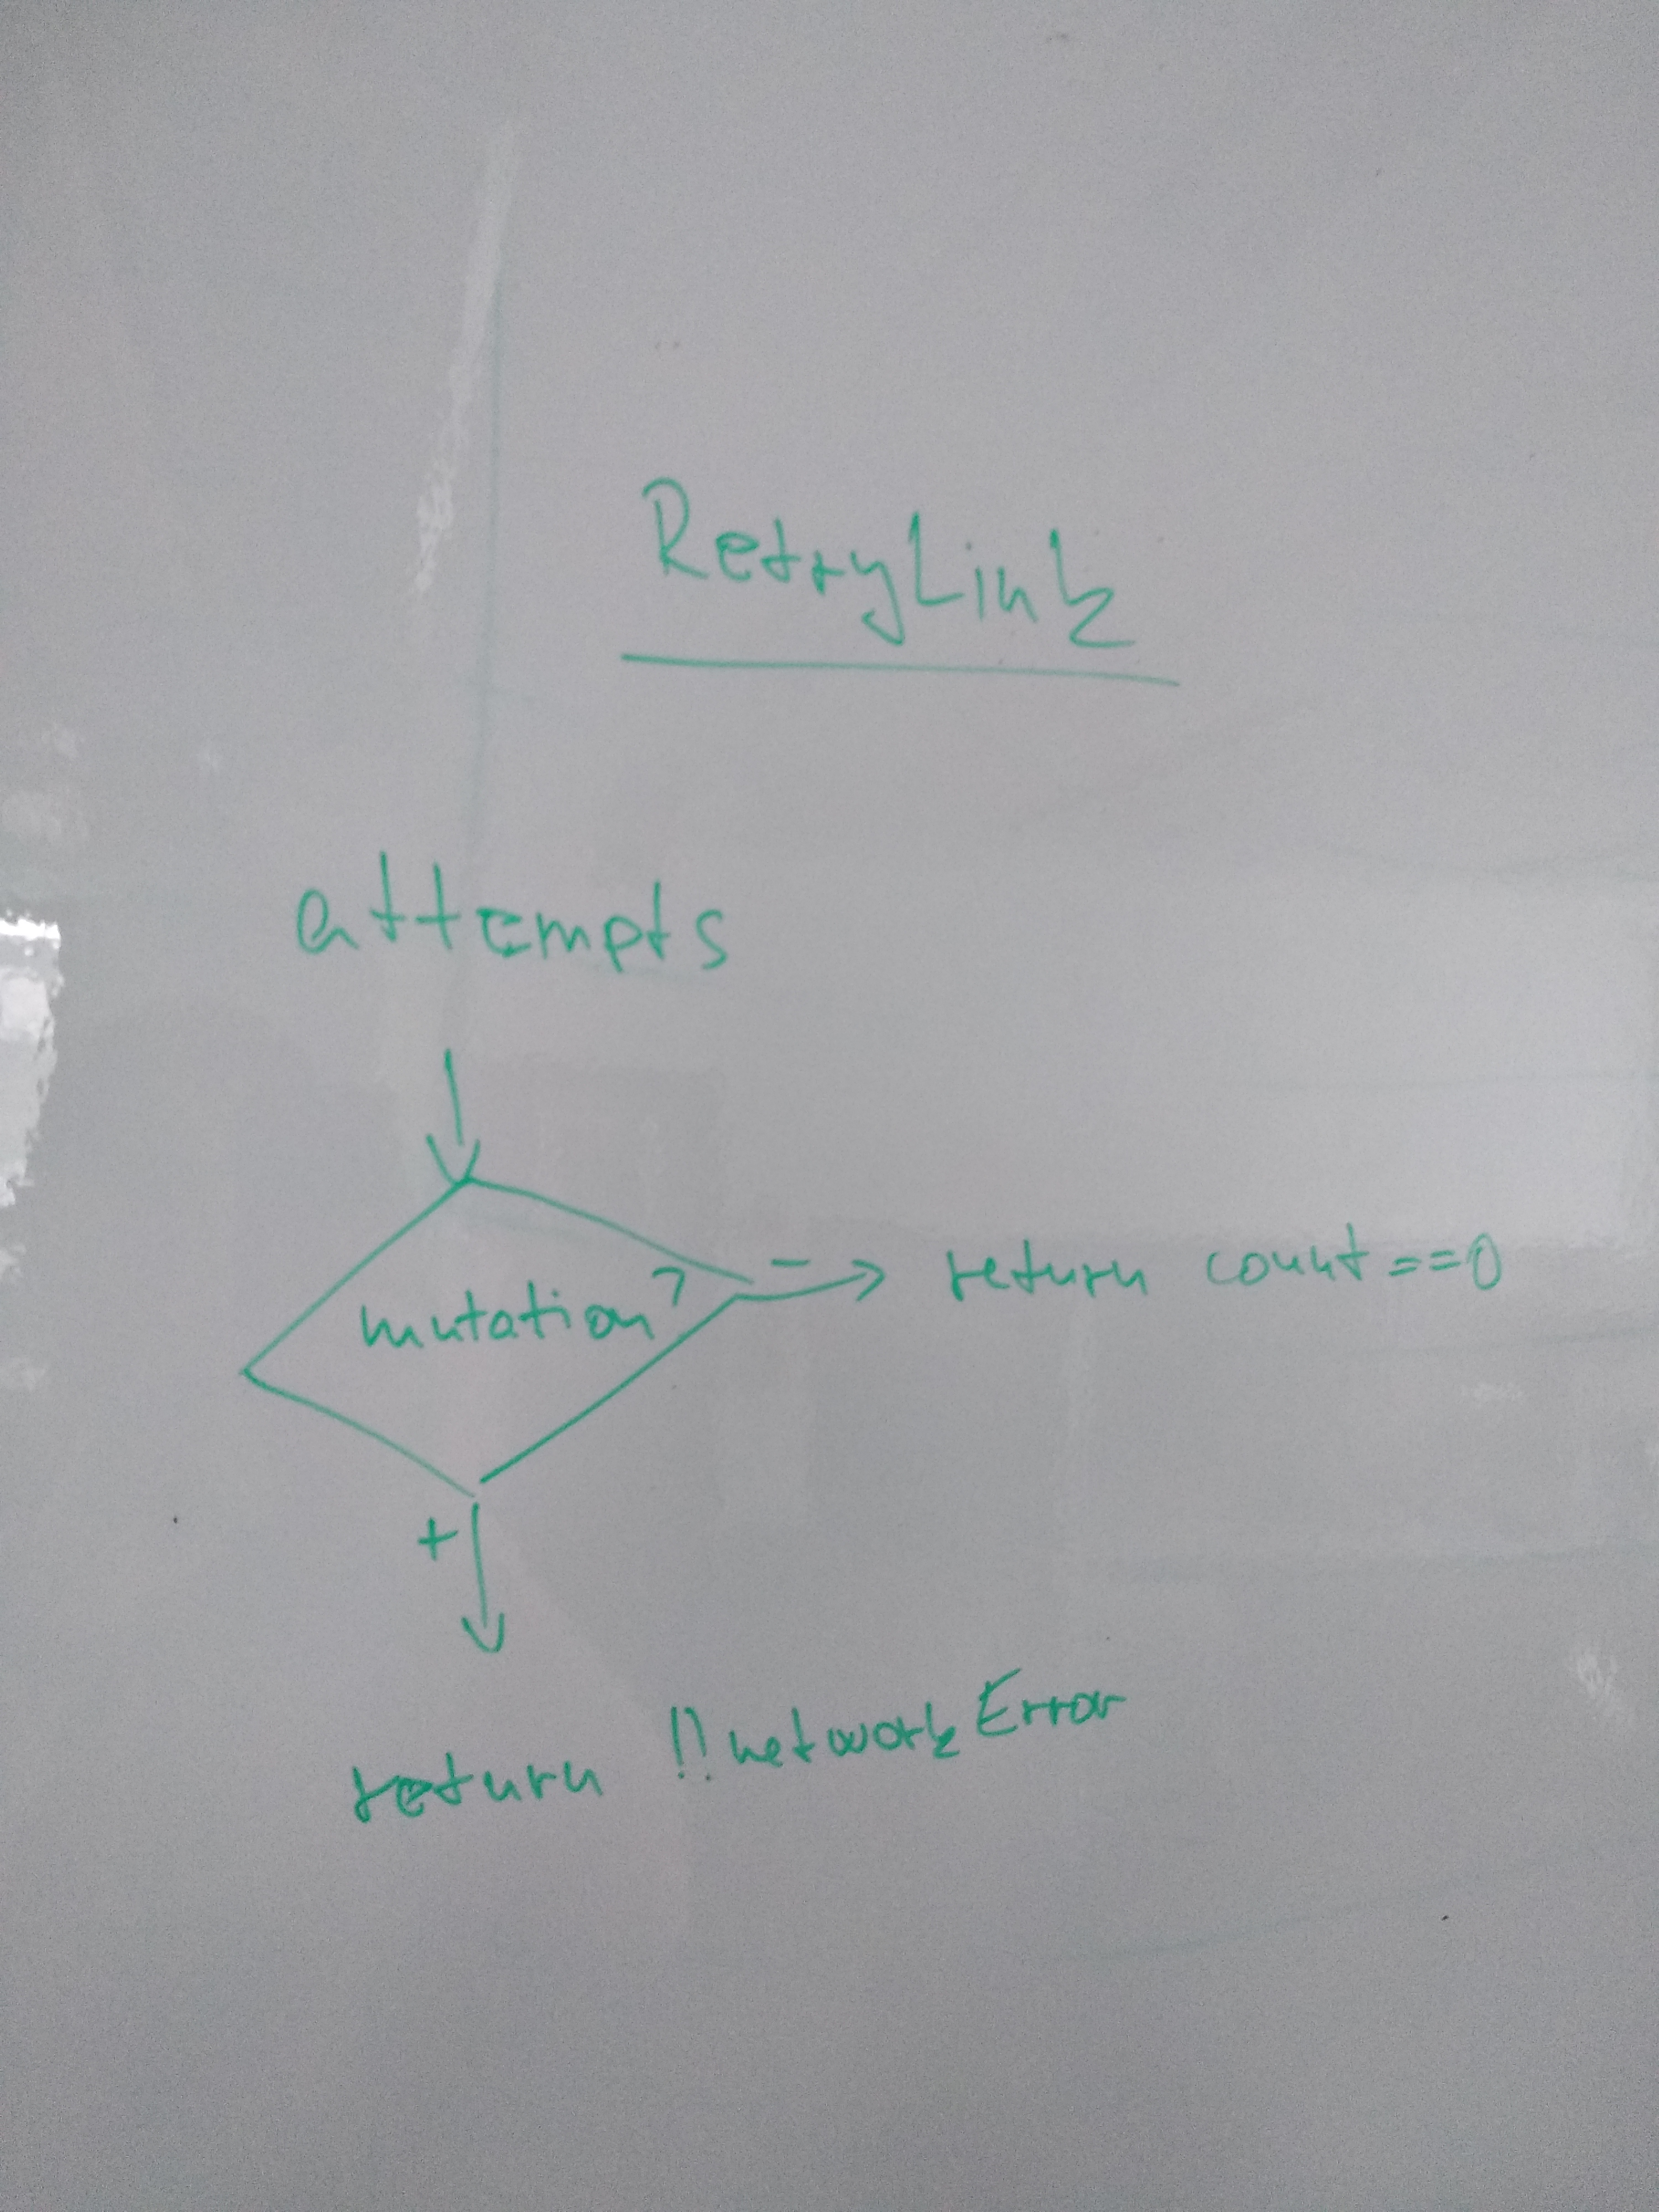 RetryLink
attempts
mutation?
- return count==0
+
return !!networkError